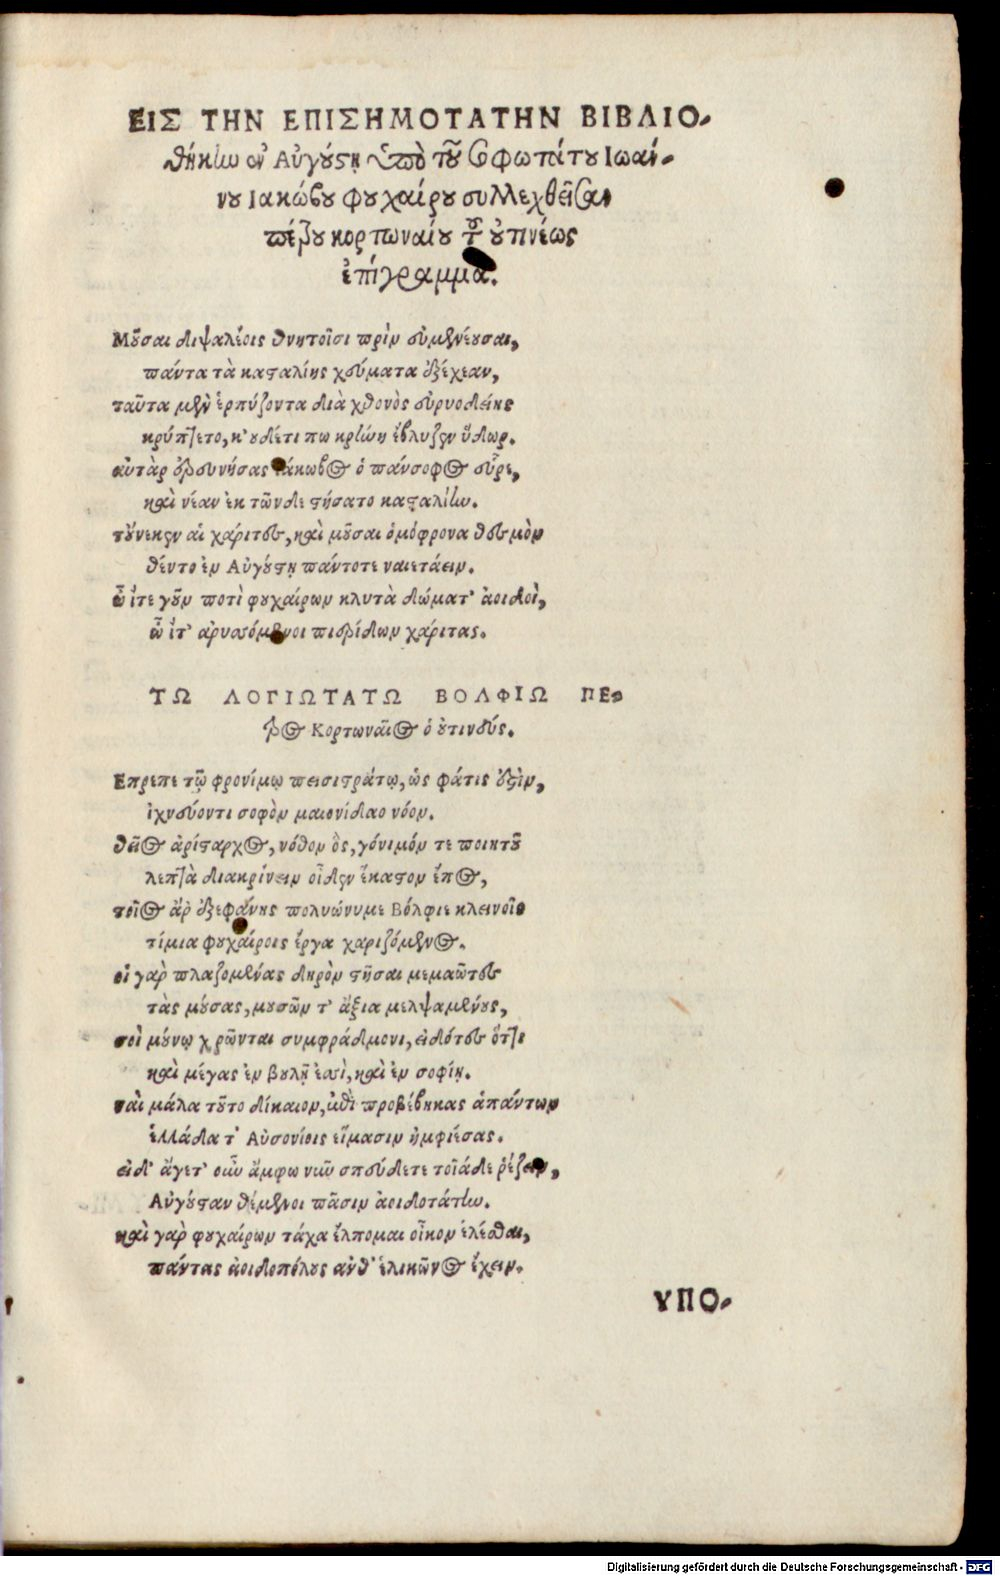 ΕΙΣ ΤΗΝ ΕΠΙΣΗΜΟΤΑΤΗΝ ΒΙΒΛΙΟ-
θήκην ἐν Αὐγούστῃ ὑπὸ τοῦ σοφωτάτου Ἰωάν-
νου Ἰακώβου φουχαίρου συλλεχθεῖσαν
πέτρου κορτωναίου τοῦ οὐτινέως
ἐπίγραμμα.
Μοῦσαι διψαλέοις θνητοῖσι πρὶν εὐμενέουσαι,
πάντα τὰ κασταλίης χεύματα ἐξέχεαν,
ταῦτα μὲν ἑρπύζοντα διὰ χθονὸς εὐρυοδείης
κρύπτετο, κ' οὐδέτι πω κρήνη ἔβλυζεν ὕδωρ.
αὐτὰρ ἐρευνήσας ἰάκωβος ὁ πάνσοφος εὗρε,
καὶ νέαν ἐκ τῶνδε στήσατο κασταλίην.
τούνεκεν αἱ χάριτες, καὶ μοῦσαι ὁμόφρονα θεσμὸν
θέντο ἐν Αὐγούστῃ πάντοτε ναιετάειν.
ὦ ἴτε γοῦν ποτὶ φουχαίρων κλυτὰ δώματ' ἀοιδοὶ,
ὦ ἴτ' ἀρυσόμενοι πιερίδων χάριτας.
ΤΩ ΛΟΓΙΩΤΑΤΩ ΒΟΛΦΙΩ ΠΕ-
τρος Κορτωναῖος ὁ οὐτινεύς.
Επρεπε τῷ φρονίμῳ πεισιστράτῳ, ὡς φάτις ἐστὶν,
ἰχνεύοντι σοφὸν μαιονίδαο νόον.
θεῖος ἀρίσταρχος, νόθον ὃς, γόνιμόν τε ποιητοῦ
λεπτὰ διακρίνειν οἶδεν ἕκαστον ἔπος,
τοῖος ἂρ ἐξεφάνης πολυώνυμε Βόλφιε κλεινοῖς
τίμια φουχαίροις ἔργα χαριζόμενος.
οἱ γὰρ πλαζομένας δηρὸν στῆσαι μεμαῶτες
τὰς μούσας, μουσῶν τ' ἄξια μελψαμένους,
σοὶ μούνῳ χρῶνται συμφράδμονι, εἰδότες ὅττι
καὶ μέγας ἐν βουλῇ ἐσσὶ, καὶ ἐν σοφίῃ.
ναὶ μάλα τοῦτο δίκαιον, ἐπεὶ προβέβηκας ἁπάντων
ἑλλάδα τ' Αὐσονίοις εἵμασιν ἠμφιέσας.
εἰδ' ἄγετ' οὖν ἄμφω νῦν σπεύδετε τοιάδε ῥέζειν,
Αὐγούσταν θέμενοι πᾶσιν ἀοιδοτάτην.
καὶ γὰρ φουχαίρων τάχα ἔλπομαι οἶκον ἑλέσθαι,
πάντας ἀοιδοπόλους ἀνθ' ἑλικῶνος ἔχειν.
ΥΠΟ-
Digitalisierung gefördert durch die Deutsche Forschungsgemeinschaft - DFG